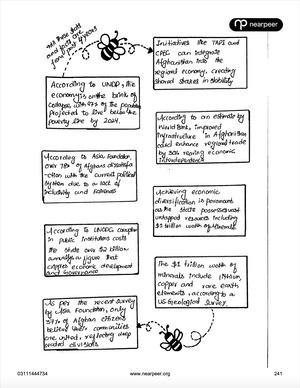 nearpeer
All these stats
and facts are
from past 4 years
According to UNDP, the
economy is on the brink of
collapse, with 97% of the population
projected to live below the
poverty line by 2024.
According to Asia Foundation,
over 78% of Afghans dissatisfa
ction with the current political
system due to a lack of
inclusivity and fairness
According to UNODC corruption
in public institutions costs
the state over $2 billion
annually, a figure that
cripples economic development
and Governance
As per the recent survey
by Asia Foundation, only
37% of Afghan citizens
believe their communities
are united, reflecting deep
rooted divisions
Initiatives like TAPI and
CPEC can integrate
Afghanistan into the
regional economy, creating
shared stakes in stability
According to an estimate by
World Bank, improved
infrastructure in Afghanistan
could enhance regional trade
by 30% raising economic
interdependence
Achieving economic
diversification is paramount
as the state possesses vast
untapped resources including
$1 trillion worth of Minerals
The $1 trillion worth of
minerals include lithium,
copper and rare earth
elements, according to a
US Geological Survey.
03111444734
www.nearpeer.org
241